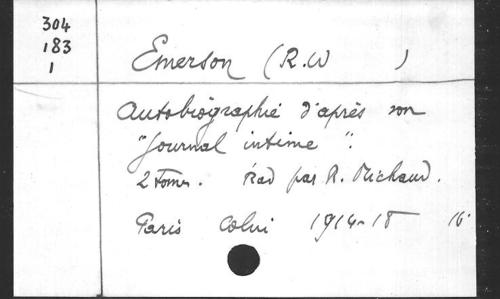 304
183
1
Emerson (R.W )
Autobiographie d'après son
"Journal intime".
2 Tomes. Trad par R. Michaud.
Paris Colin 1914-18 16°